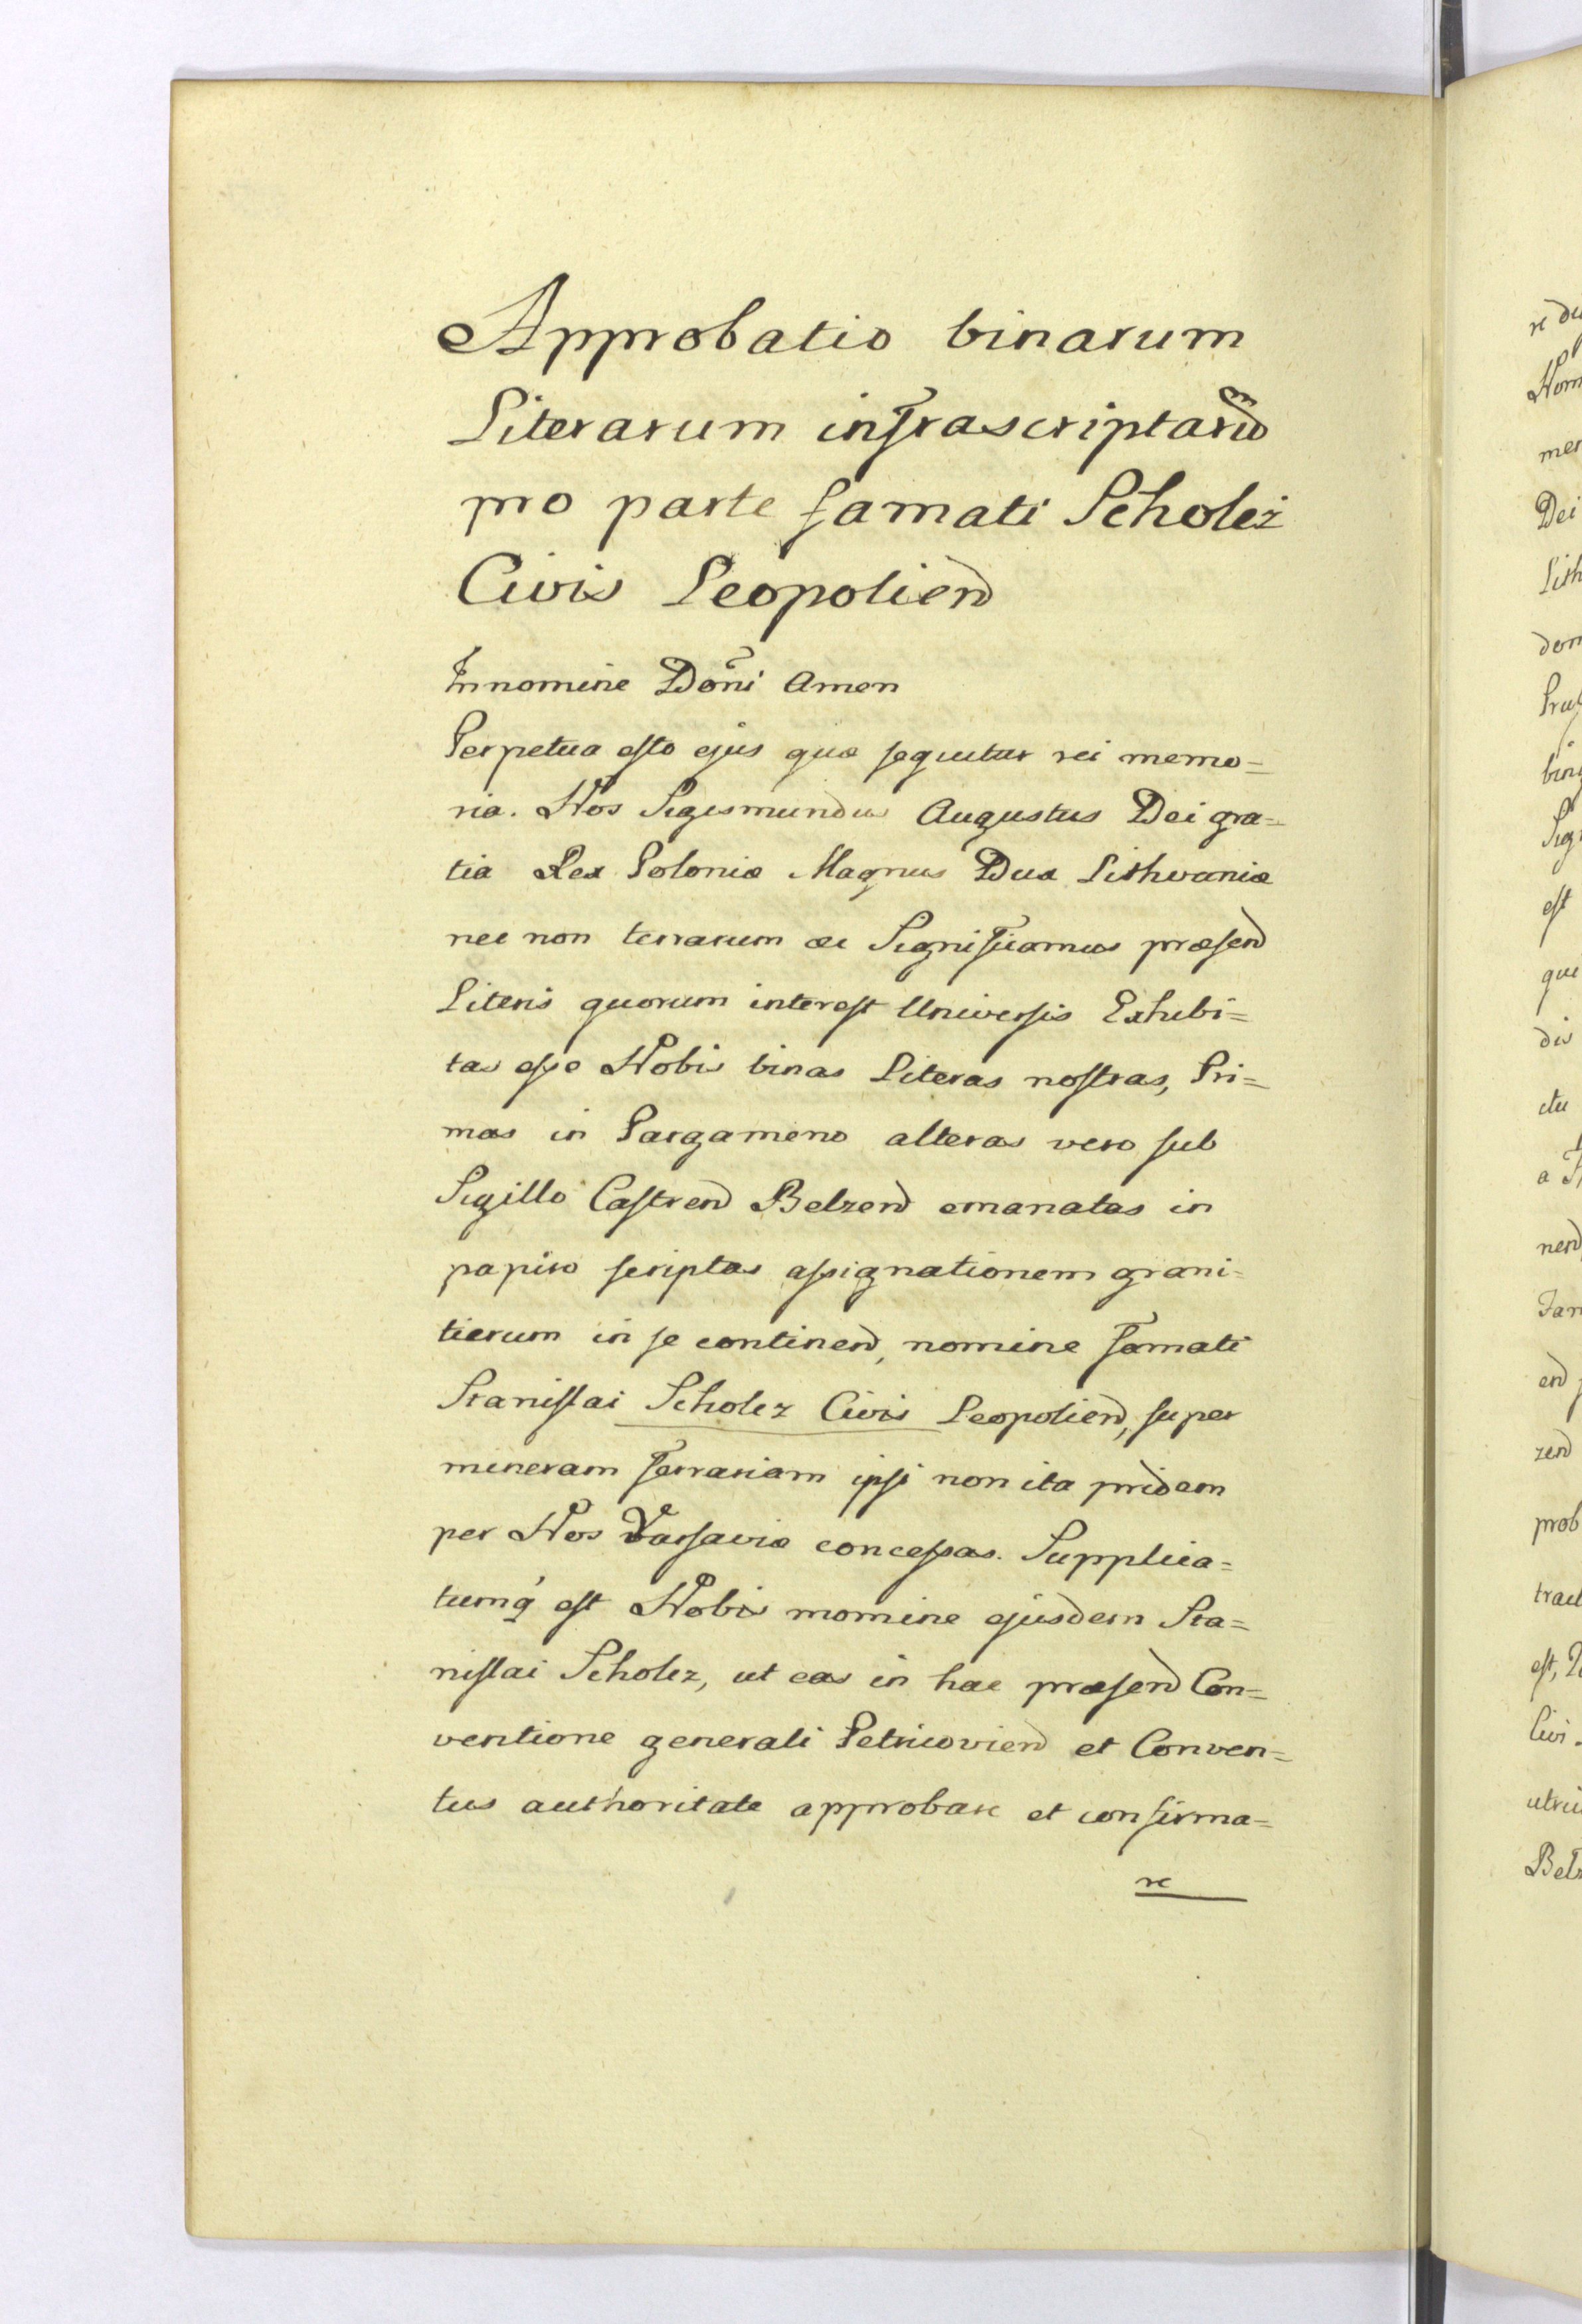 Approbatio binarum
Literarum infrascriptaru͂
pro parte famati Scholcz
Civis Leopolien͂
In nomine Dom̃i Amen
Perpetua esto ejus quæ sequitur rei memo=
ria. Nos Sigismundus Augustus Dei gra=
tia Rex Poloniæ Magnus Dux Lithvaniæ
nec non terrarum æc Significamus præsen͂
Literis quorum interest Universis Exhibi=
tas esse Nobis binas Literas nostras, Pri=
mas in Pargameno alteras vero sub
Sigillo Castren͂ Belzen͂ emanatas in
papiro scriptas assignationem grani=
tierum in se continen͂, nomine famati
Stanislai Scholcz Civis Leopolien͂, super
mineram ferrariam ipsi non ita pridem
per Nos Varsaviæ concessas. Supplica=
tumq́ est Nobis momine ejusdem Sta=
nislai Scholcz, ut eas in hac præsen͂ Con=
ventione generali Petricovien͂ et Conven=
tus authoritate approbare et confirma=
re